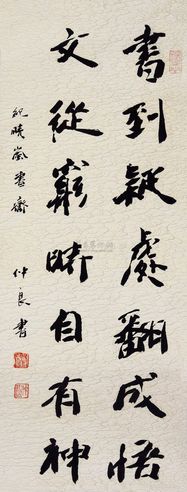 書到疑處翻成悟
文從窮時自有神
紀曉嵐書齋
仲良書